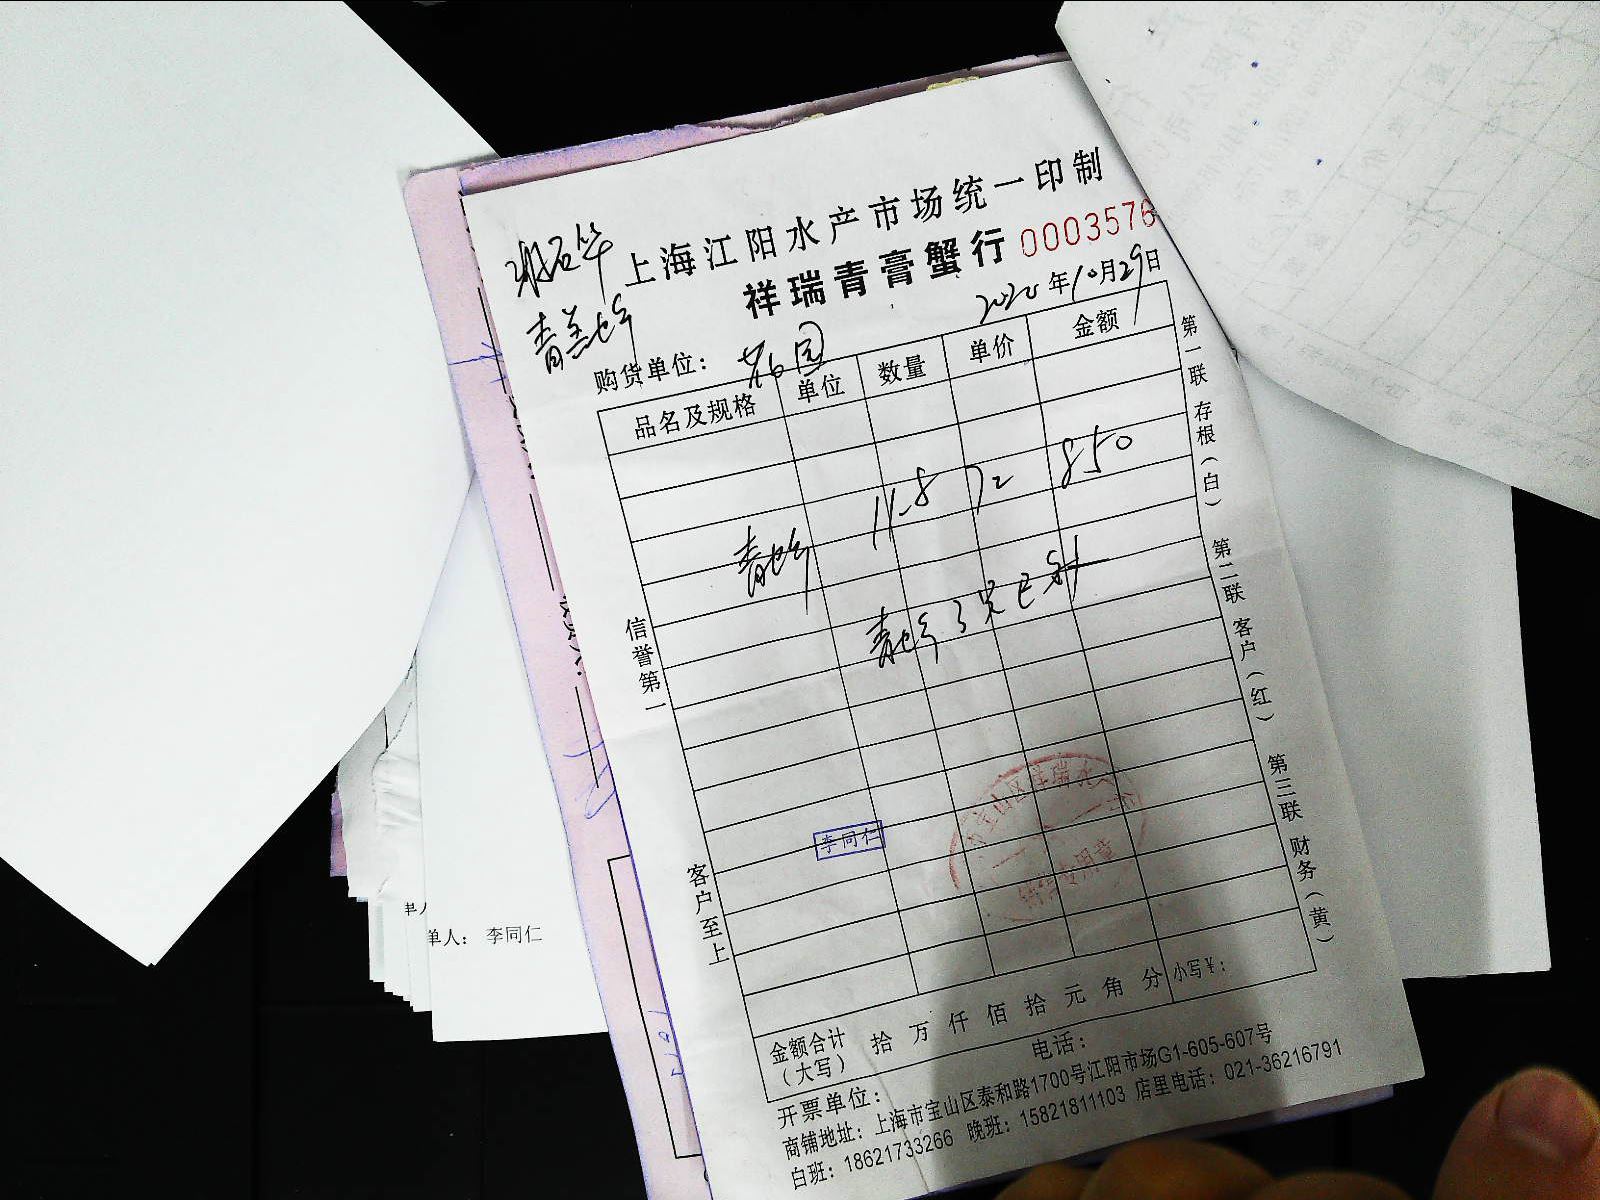 上海江阳水产市场统一印制
祥瑞青膏蟹行 0003576
2020年10月29日
购货单位：花园
品名及规格 单位 数量 单价 金额
青蟹 11.8 72 850
青蟹
信誉第一
客户至上
第一联 存根（白） 第二联 客户（红） 第三联 财务（黄）
李同仁
宝山区祥瑞水
专用章
金额合计（大写） 拾 万 仟 佰 拾 元 角 分 小写¥：
开票单位： 电话：
商铺地址：上海市宝山区泰和路1700号江阳市场G1-605-607号
白班：18621733266 晚班：15821811103 店里电话：021-36216791
单人： 李同仁